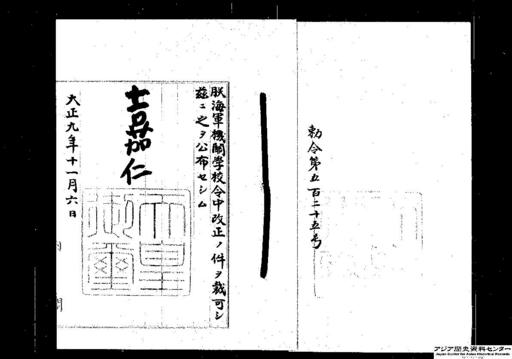 勅令第五百二十五号
朕海軍機關学校令中改正ノ件ヲ裁可シ
茲ニ之ヲ公布セシム
嘉仁
天皇御璽
大正九年十一月六日
内閣
アジア歴史資料センター
Japan Center for Asian Historical Records